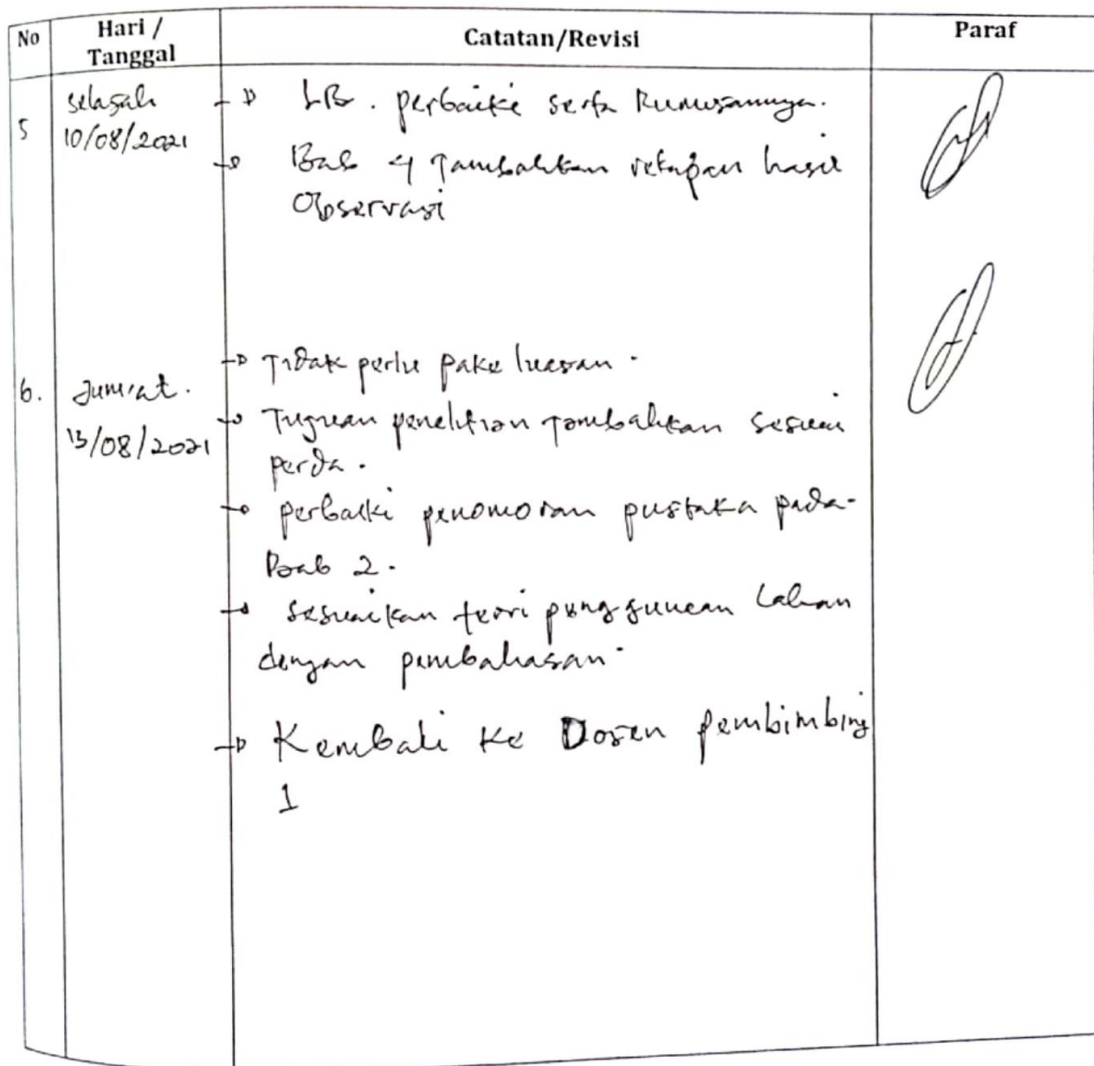 No
Hari /
Tanggal
Catatan/Revisi
Paraf
5
selasah
10/08/2021
LB. perbaiki serta Rumusannya.
Bab 4 Tambahkan rekapan hasil
Observasi
6.
Jum'at.
13/08/2021
Tidak perlu pake luasan.
Tujuan penelitian Tambahkan sesuai
perda.
perbaiki penomoran pustaka pada
Bab 2.
sesuaikan teori penggunaan lahan
dengan pembahasan.
Kembali ke Dosen pembimbing
1